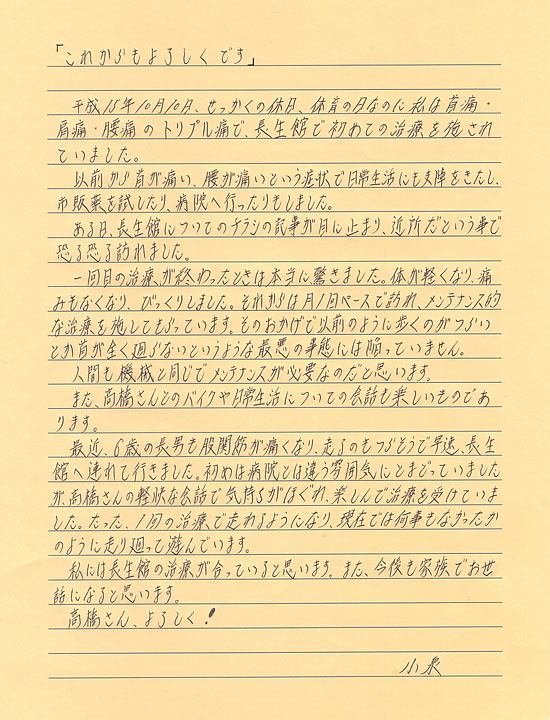 「これからもよろしくです」
平成15年10月10日、せっかくの休日、体育の日なのに私は首痛・
肩痛・腰痛のトリプル痛で、長生館で初めての治療を施され
ていました。
以前から首が痛い、腰が痛いという症状で日常生活にも支障をきたし、
市販薬を試したり、病院へ行ったりもしました。
ある日、長生館についてのチラシの記事が目に止まり、近所だという事で
恐る恐る訪れました。
一回目の治療が終わったときは本当に驚きました。体が軽くなり、痛
みもなくなり、びっくりしました。それからは月1回ペースで訪れ、メンテナンス的
な治療を施してもらっています。そのおかげで以前のように歩くのがつらい
とか首が全く廻らないというような最悪の事態には陥っていません。
人間も機械と同じでメンテナンスが必要なのだと思います。
また、高橋さんとのバイクや日常生活についての会話も楽しいものであ
ります。
最近、6歳の長男も股関節が痛くなり、走るのもつらそうで早速、長生
館へ連れて行きました。初めは病院とは違う雰囲気にとまどっていました
が、高橋さんの軽快な会話で気持ちがほぐれ、楽しんで治療を受けていま
した。たった、1回の治療で走れるようになり、現在では何事もなかったか
のように走り廻って遊んでいます。
私には長生館の治療が合っていると思います。また、今後も家族でお世
話になると思います。
高橋さん、よろしく！
小泉